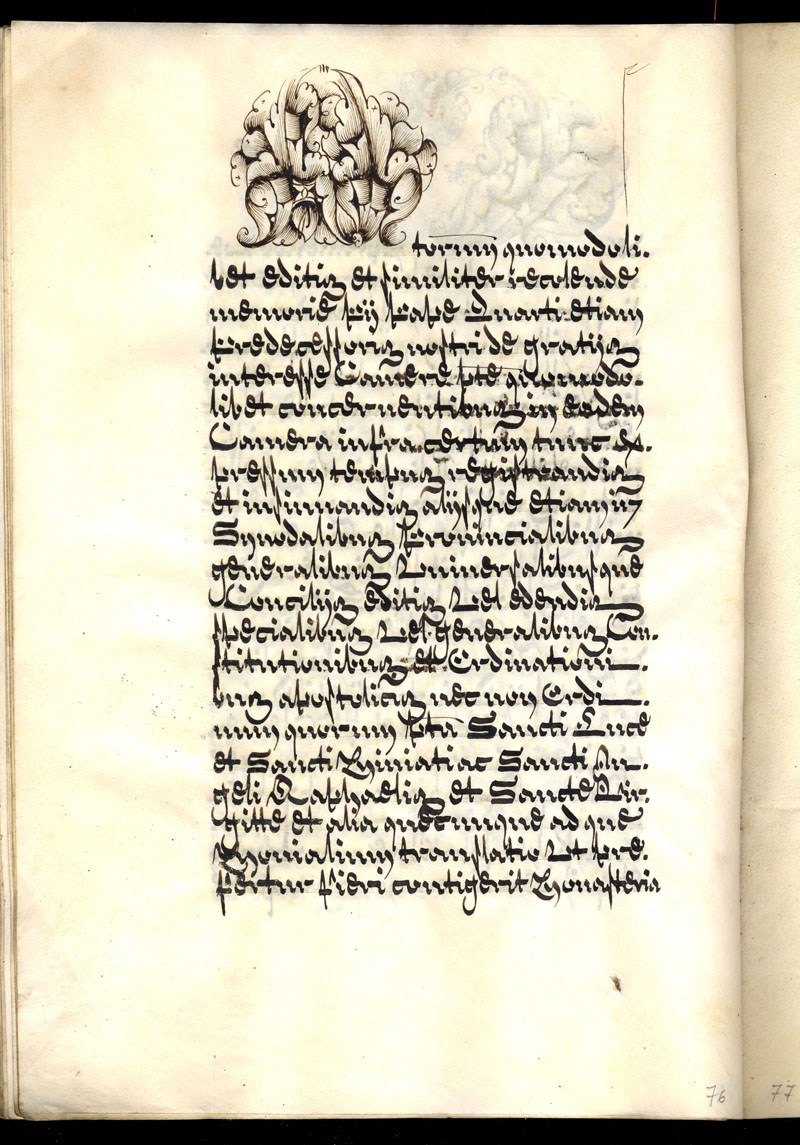 torum quomodoli-
bet editis et similiter recolende
memorie Pij Pape Quarti etiam
Predecessoris nostri de gratijs
interesse Camere pte quomodo-
libet concernentibus in eadem
Camera infra certum tunc ex-
pressum tempus registrandis
et insinuandis alijsque etiam in
Synodalibus Provincialibus
generalibus Universalibusque
Concilijs editis Vel edendis
specialibus Vel generalibus Con-
stitutionibus et Ordinationi-
bus apostolicis nec non Ordi-
num quorum pta Sancti Luce
et Sancti Miniati ac Sancti An-
geli Raphaelis et Sancte Bir-
gitte et alia quecunque ad que
Monialium translatio Ut pre-
fertur fieri contigerit Monasteria
76
77